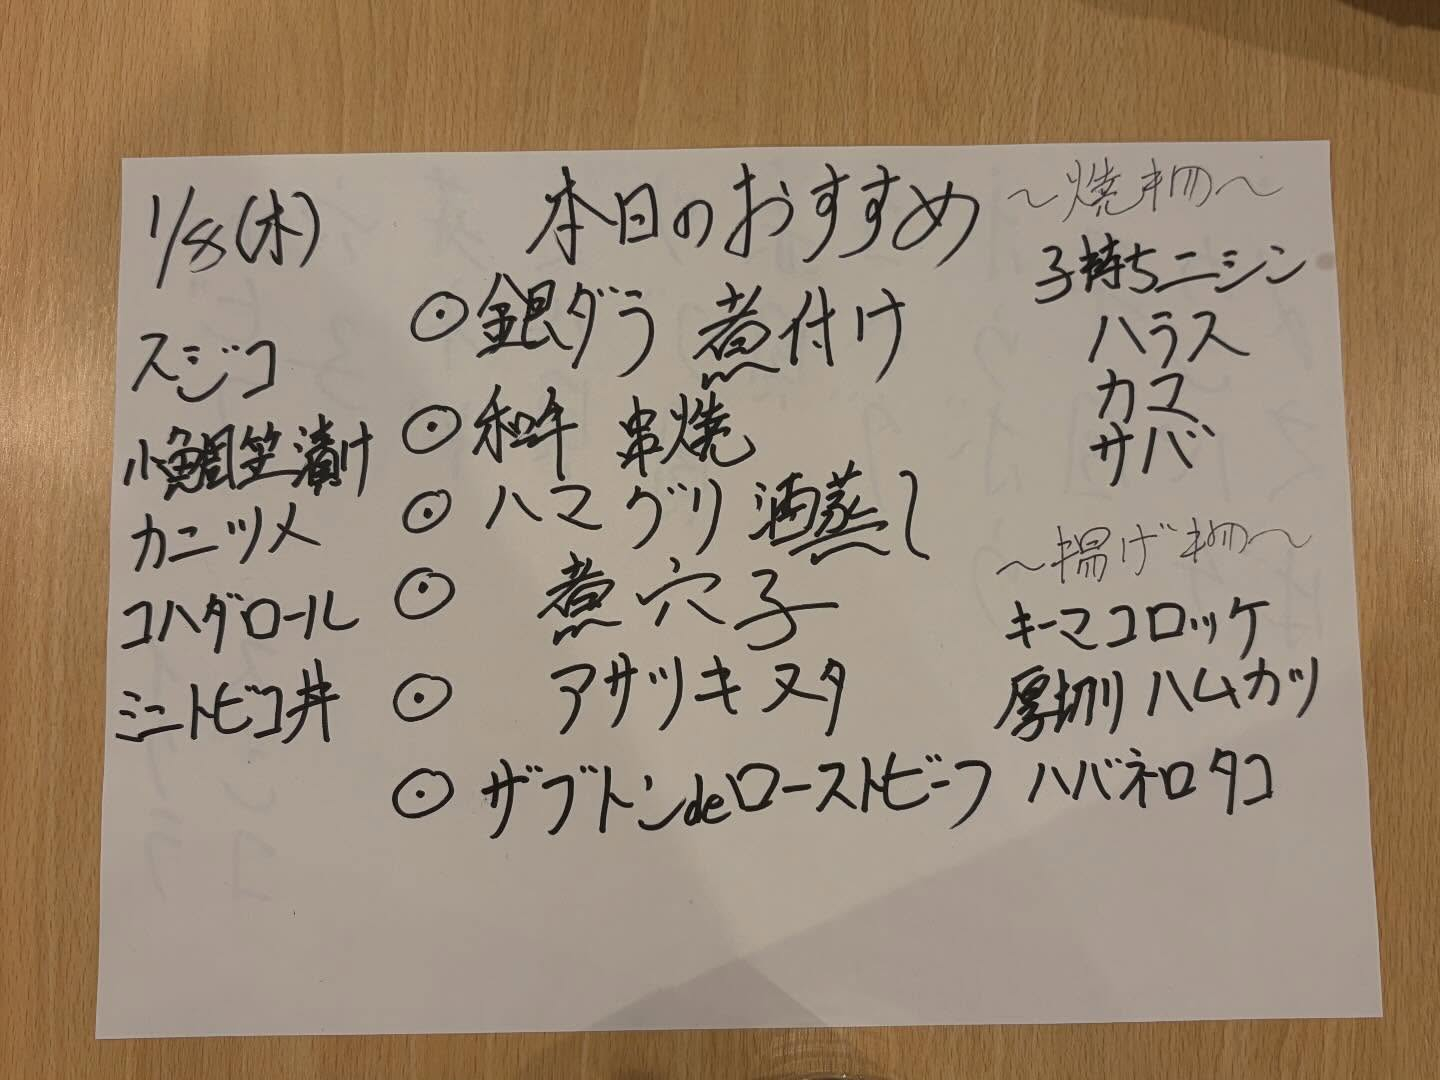 1/8(木)
スジコ
小鯛笹漬け
カニツメ
コハダロール
ミニトビコ丼
本日のおすすめ
⦿銀ダラ 煮付け
⦿和牛 串焼
⦿ハマグリ 酒蒸し
⦿煮穴子
⦿アサツキ ヌタ
⦿ザブトンdeローストビーフ
～焼き物～
子持ちニシン
ハラス
カマ
サバ
～揚げ物～
キーマコロッケ
厚切り ハムカツ
ハバネロタコ